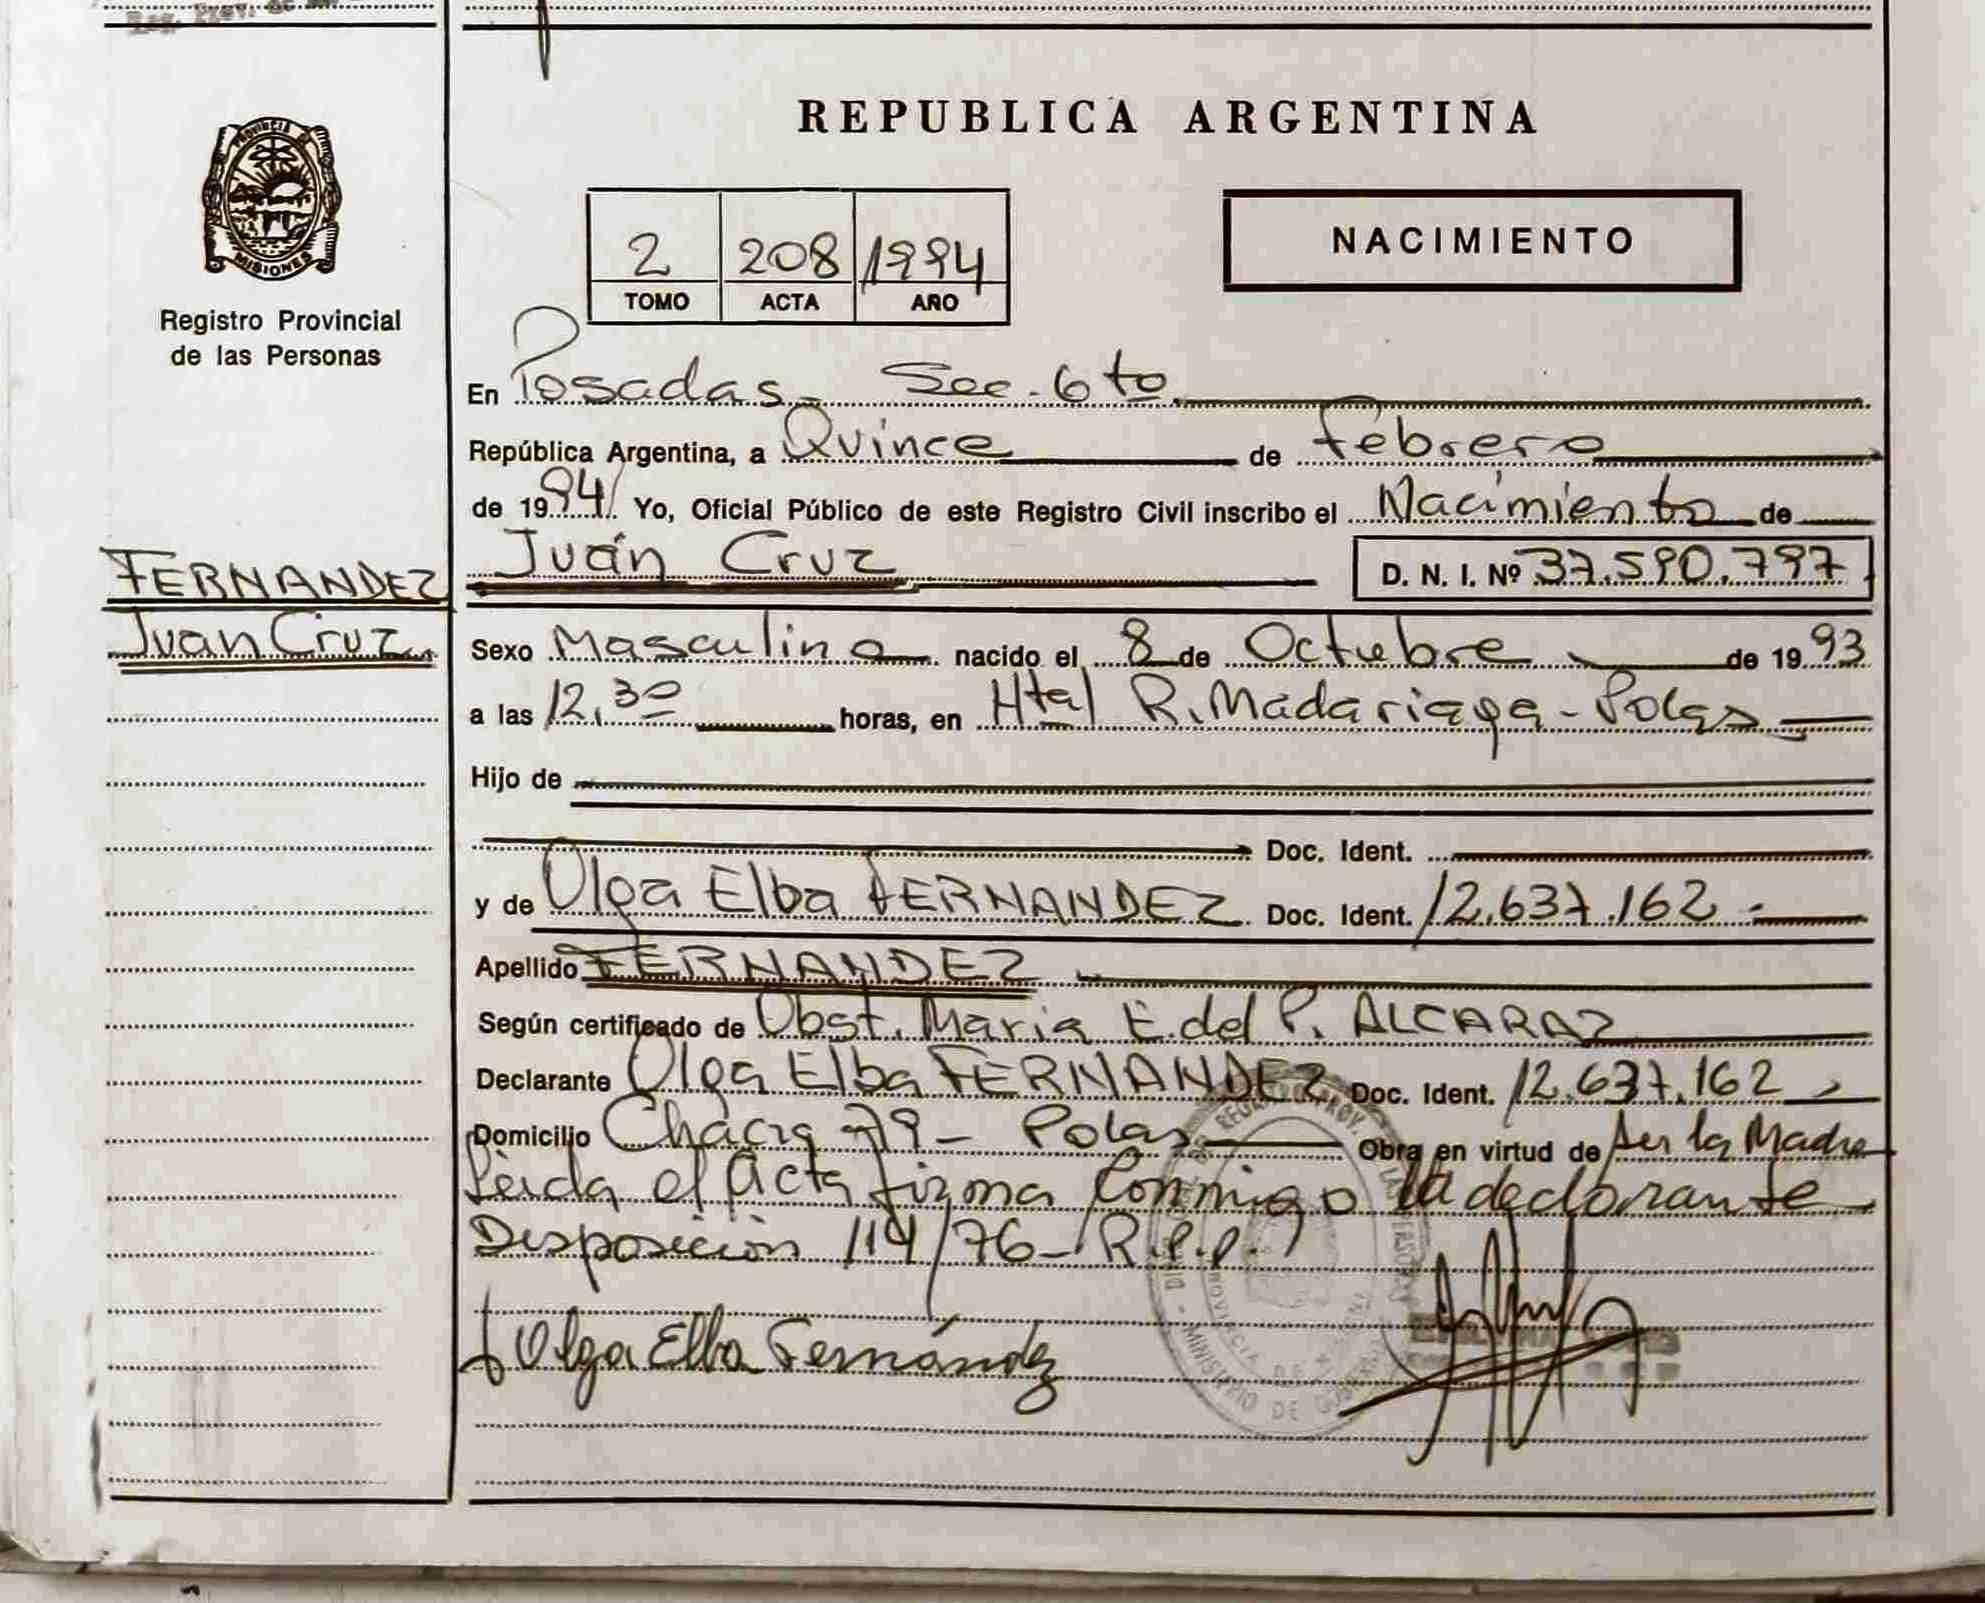 Reg. Prov. de
REPUBLICA ARGENTINA
PROVINCIA DE
MISIONES
Registro Provincial
de las Personas
2 208 1994
TOMO ACTA AÑO
NACIMIENTO
En Posadas - Sec. 6to
República Argentina, a Quince de Febrero
de 1994 Yo, Oficial Público de este Registro Civil inscribo el Nacimiento de
Juan Cruz D. N. I. Nº 37.590.797
FERNANDEZ
Juan Cruz
Sexo Masculino nacido el 8 de Octubre de 1993
a las 12,30 horas, en Htal R. Madariaga - Pdas
Hijo de
Doc. Ident.
y de Olga Elba FERNANDEZ Doc. Ident. 12.637.162 -
Apellido FERNANDEZ
Según certificado de Obst. Maria E. del P. ALCARAZ
Declarante Olga Elba FERNANDEZ Doc. Ident. 12.637.162
Domicilio Chacra 79 - Pdas Obra en virtud de ser la Madre
Leida el Acta firma conmigo la declarante
Disposición 114/76 - R.P.P.
Olga Elba Fernández
MINISTERIO DE
PROVINCIA DE